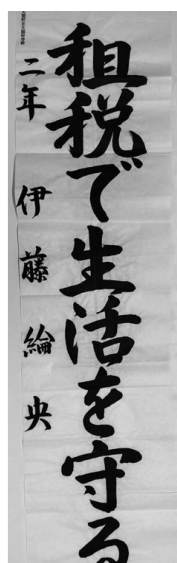 租税で生活を守る
二年 伊藤綸央